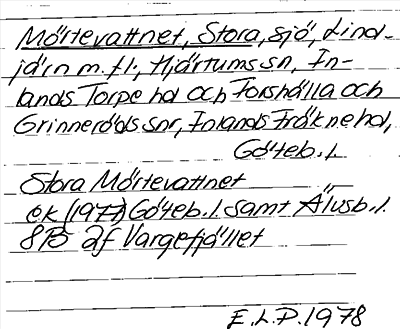 Mörtevattnet, Stora, sjö, Lind-
järn m.fl., Hjärtums sn, In-
lands Torpe hd och Forshälla och
Grinneröds snr, Inlands Fräkne hd,
Göteb. l.
Stora Mörtevattnet
ek (1977) Göteb. l. samt Älvsb. l.
8B 2f Vargefjället
E.L.P. 1978